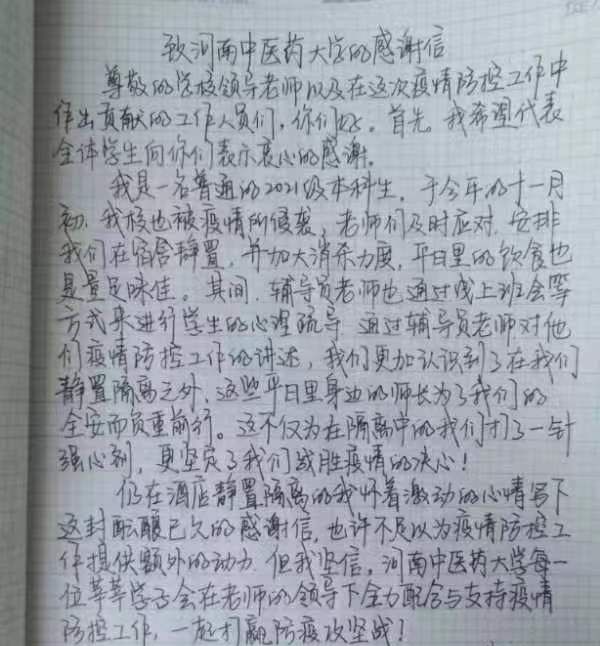 致河南中医药大学的感谢信
尊敬的学校领导老师以及在这次疫情防控工作中
作出贡献的工作人员们，你们好。首先，我希望代表
全体学生向你们表示衷心的感谢。
我是一名普通的2021级本科生，于今年的十一月
初，我校也被疫情所侵袭，老师们及时应对，安排
我们在宿舍静置，并加大消杀力度，平日里的饮食也
是量足味佳。其间，辅导员老师也通过线上班会等
方式来进行学生的心理疏导，通过辅导员老师对他
们疫情防控工作的讲述，我们更加认识到了在我们
静置隔离之外，这些平日里身边的师长为了我们的
全安而负重前行。这不仅为在隔离中的我们打了一针
强心剂，更坚定了我们战胜疫情的决心！
仍在酒店静置隔离的我怀着激动的心情写下
这封酝酿已久的感谢信，也许不足以为疫情防控工
作提供额外的动力，但我坚信，河南中医药大学每一
位莘莘学子会在老师的领导下全力配合与支持疫情
防控工作，一起打赢防疫攻坚战！